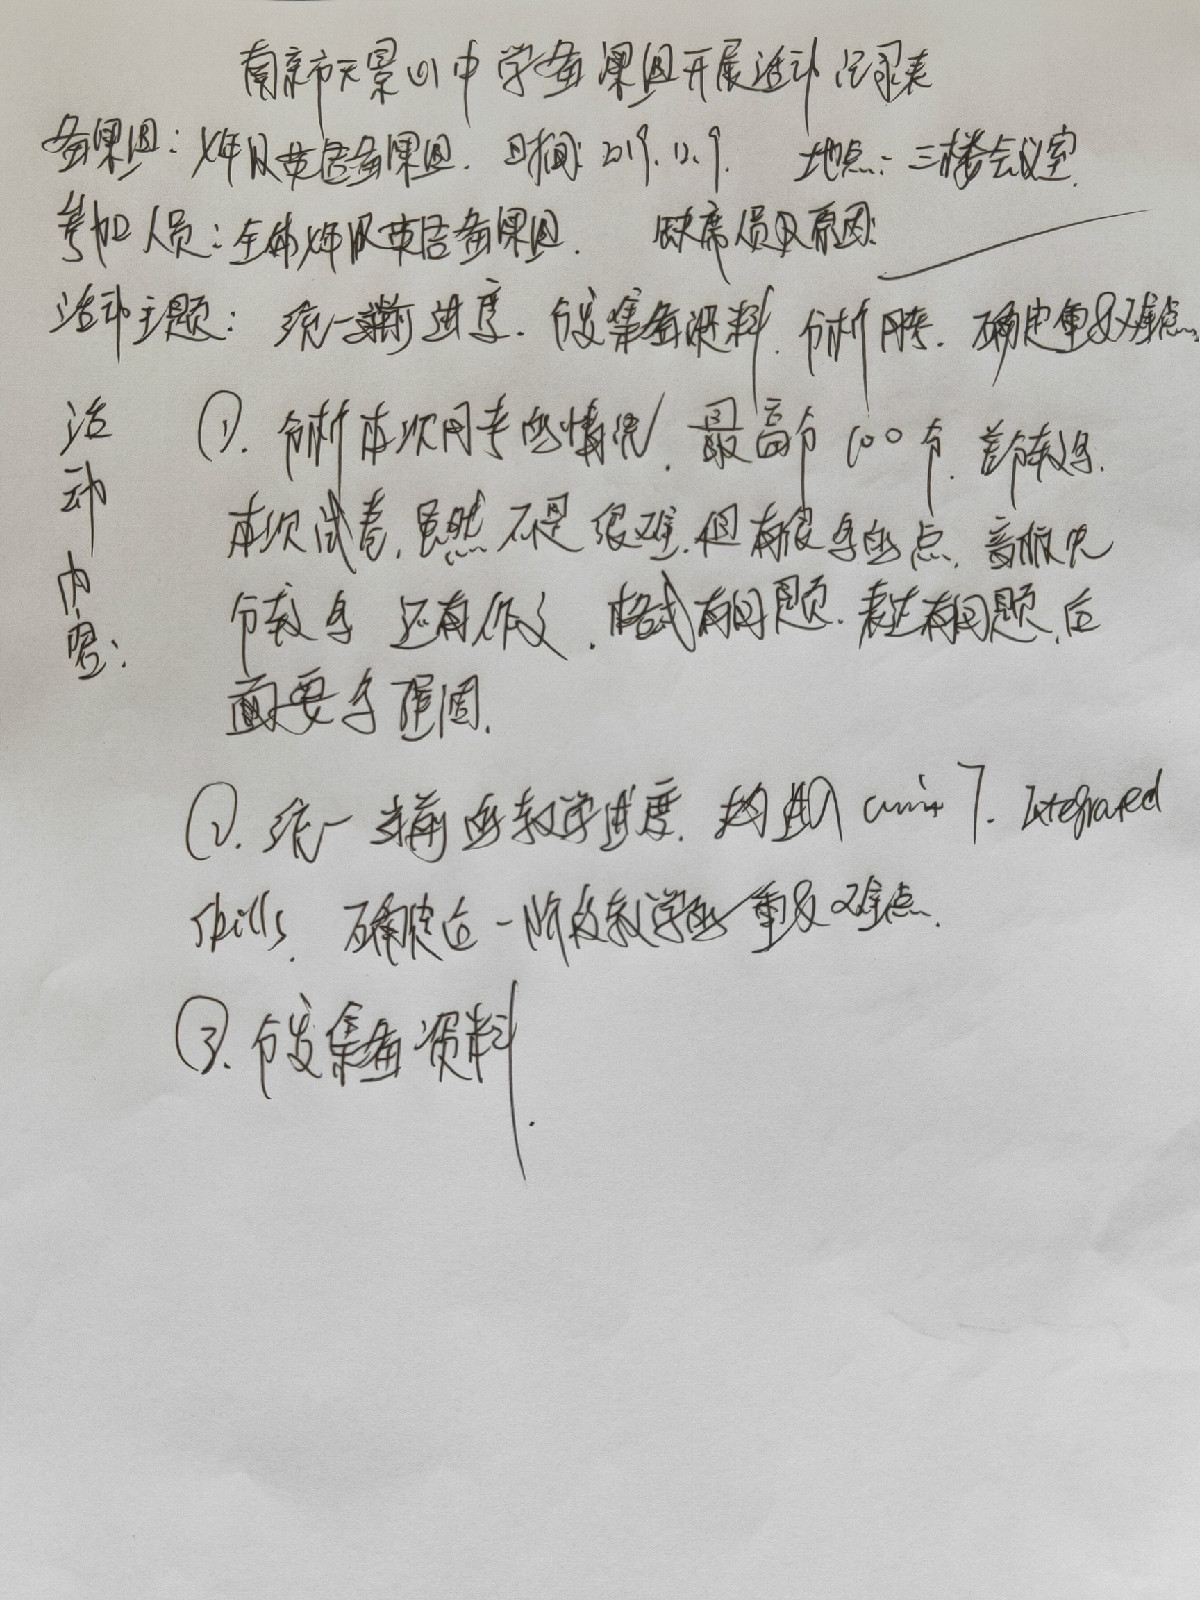 南京市天景山中学备课组开展活动记录表
备课组：年级英语备课组. 时间：2019.12.9. 地点：三楼会议室.
参加人员：全体年级英语备课组. 缺席人员及原因：
活动主题：统一当前进度. 分发集备资料. 分析周考. 确定重及难点.
活动内容：
①. 分析本次周考的情况. 最高分100分. 差分较多.
本次试卷, 虽然不是很难. 但有很多的点.
分较多 还有作文. 格式有问题. 表达有问题, 后
面要多强调.
②. 统一当前的教学进度. 均进入 unit 7. Integrated
skills. 确定这一阶段教学的重及难点.
③. 分发集备资料.